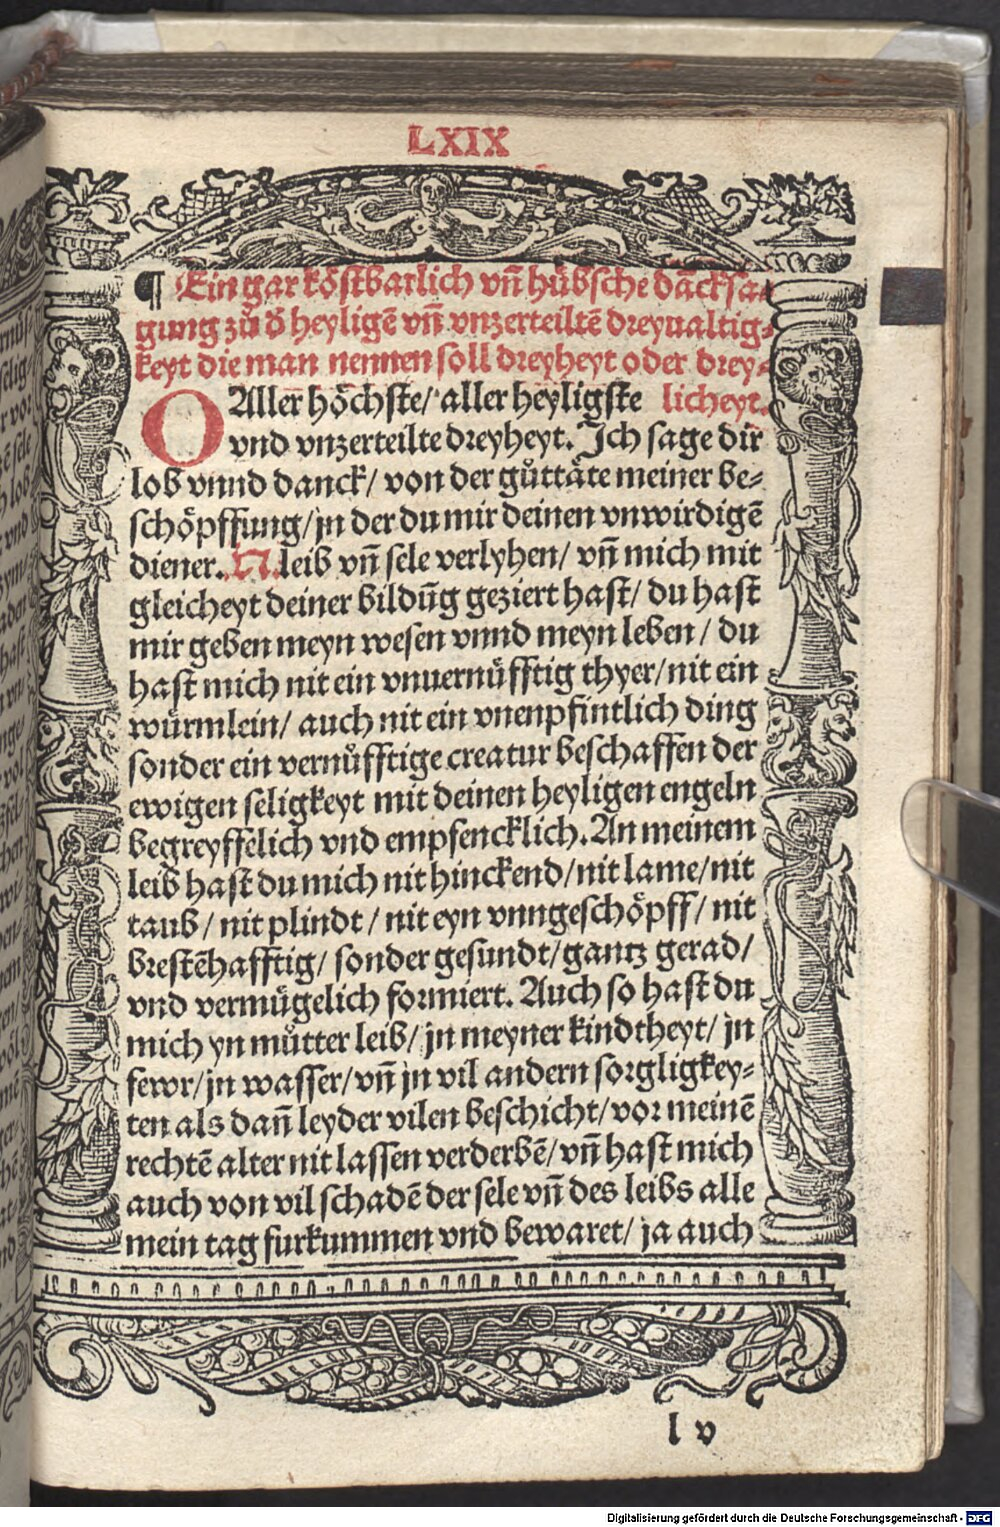 LXIX
¶ Ein gar köstbarlich vn̄ hübsche dācksa-
gung zů d heyligē vn̄ vnzerteiltē dreyualtig-
keyt die man nennen soll dreyheyt oder drey-
licheyt.
O Aller höchste/ aller heyligste
vnd vnzerteilte dreyheyt. Ich sage dir
lob vnnd danck/ von der gůttäte meiner be-
schöpffung/ jn der du mir deinen vnwirdigē
diener. N. leib vn̄ sele verlyhen/ vn̄ mich mit
gleicheyt deiner bildūg geziert hast/ du hast
mir geben meyn wesen vnnd meyn leben/ du
hast mich nit ein vnuernůfftig thyer/ nit ein
würmlein/ auch nit ein vnenpfintlich ding
sonder ein vernůfftige creatur beschaffen der
ewigen seligkeyt mit deinen heyligen engeln
begreyffelich vnd empfencklich. An meinem
leib hast du mich nit hinckend/ nit lame/ nit
taub/ nit plindt/ nit eyn vnngeschöpff/ nit
brestēhafftig/ sonder gesundt/ gantz gerad/
vnd vermügelich formiert. Auch so hast du
mich yn můtter leib/ jn meyner kindtheyt/ jn
fewr/ jn wasser/ vn̄ jn vil andern sorgligkey-
ten als dan̄ leyder vilen beschicht/ vor meinē
rechtē alter nit lassen verderbē/ vn̄ hast mich
auch von vil schadē der sele vn̄ des leibs alle
mein tag furkummen vnd bewaret/ ja auch
l v
Digitalisierung gefördert durch die Deutsche Forschungsgemeinschaft - DFG